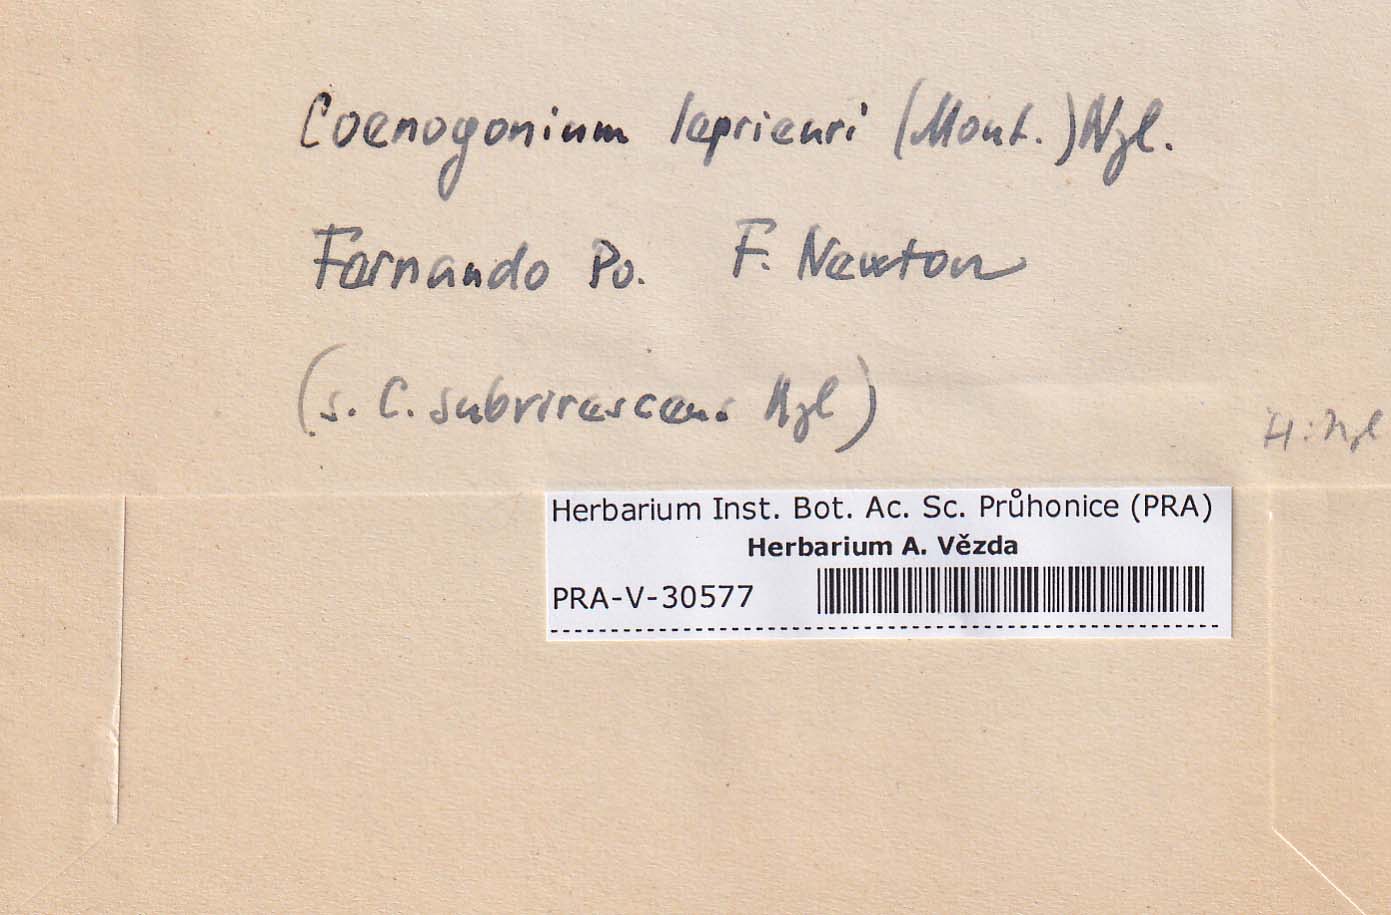 Coenogonium leprieuri (Mont.) Nyl.
Fernando Po. F. Newton
(s. C. subvirescens Nyl)
H: Nyl
Herbarium Inst. Bot. Ac. Sc. Průhonice (PRA)
Herbarium A. Vězda
PRA-V-30577